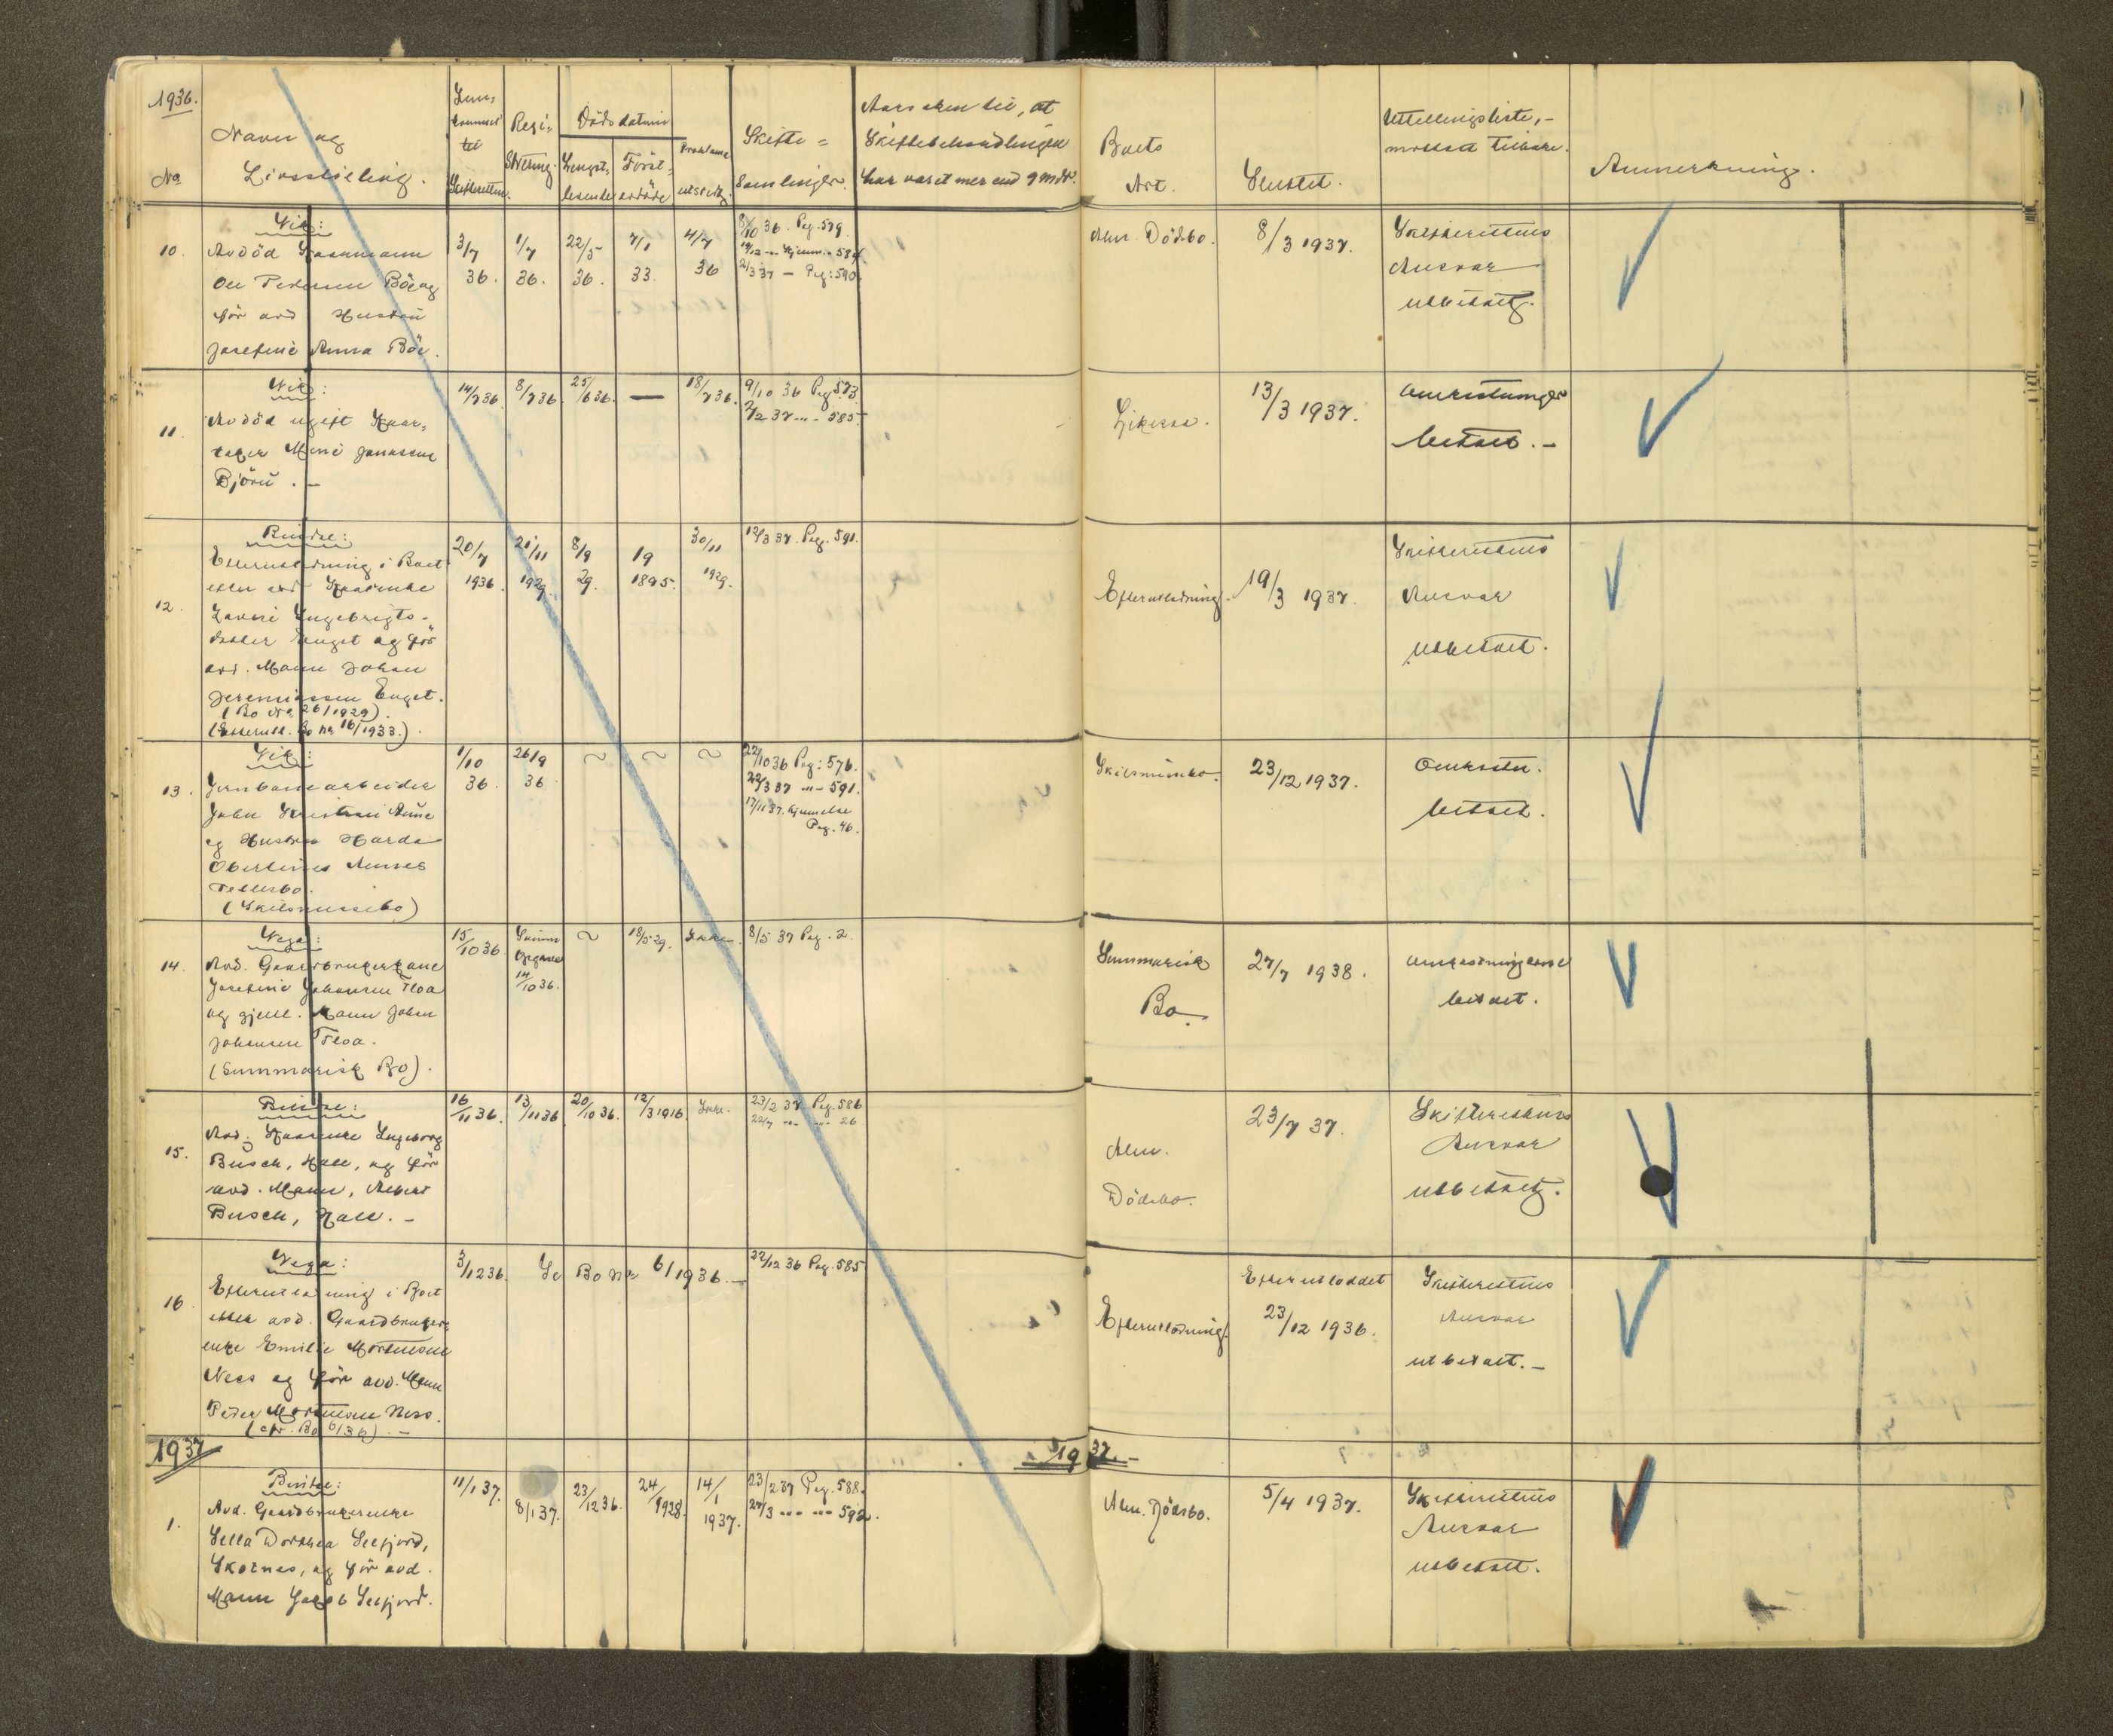 1936.
No
Navn og
Livsstilling.
til
Skifteretten.
Regi-
strering.
Dödsdatum
Lengst-
levende
Först-
avdöde
Proklama
utstedt.
Skifte=
Samlinger.
Aarsaken til, at
Skiftebehandlingen
har varet mer end 9 mdr.
Boets
Art.
Sluttet.
Utlellingsliste,-
Anmerkning.
10.
Vik:
Avdöd
Ole Pedersen Böe og
för avd Hustru
Josefine Anna Böe.
3/7
36.
1/7
36.
22/5
36.
7/1
33.
4/7
36
8/10 36. Pag. 579.
2/3 37 — Pag: 590.
Alm. Dödsbo.
8/3 1937.
Skifterettens
Ansvar
utbetalt.
11.
Vik:
Avdöd ugift Kaar-
tager
Björn. -
14/7 36.
8/7 36.
25/6 36.
—
18/7 36.
9/10 36 Pag 573.
2/2 37 -"- 585.
13/3 1937.
Omkostninger
betalt. -
12.
Bindal:
Efterutlodning i Boet
efter avd Kaarenke
Ingebrigts-
datter Enget og för
avd. Mann Johan
Jeremiassen Enget.
(Bo No 26/1929).
(Efterutl. Bo No 16/1933.).
20/7
1936.
21/11
1929.
8/9
29.
19
1895.
30/11
1929.
12/3 37. Pag. 591.
Efterutlodning.
19/3 1937.
Skifterettens
Ansvar
utbetalt.
13.
Vik:
Jernbanearbeider
John Kristian Aune
og Hustru Harda
Aunes
Fellesbo.
(Skilsmissebo)
1/10
36.
26/9
36
~
~
~
22/10 36 Pag: 576.
22/3 37 -"- 591.
17/11 37. Kjennelse
Pag. 46.
Skilsmissebo.
23/12 1937.
Omkostn.
betalt.
14.
Vega:
Avd. Gaardbrukerkone
Josefine Johansen Floa
og gjenl. Mann Johan
Johansen Floa.
(Summarisk Bo).
15/10 36.
Summ
Opgave
14/10 36.
~
18/5 29.
Ikke.
8/5 37 Pag. 2.
Summarisk
Bo.
27/7 1938.
Omkostningerne
betalt.
15.
Bindal:
Avd. Kaarenke Ingeborg
Busch, Hall, og för
avd. Mann, Albert
Busch, Hall. -
16/11 36.
13/11 36
20/10 36.
12/3 1916
Ikke.
23/2 37 Pag. 586
22/7 -"- -"- 26
Alm.
Dödsbo.
23/7 37.
Skifterettens
Ansvar
utbetalt.
16.
Vega:
Efterutlodning i Boet
efter avd. Gaardbruker-
enke Emilie Mortensen
Ness og för avd. Mann
Peder Mortensen Ness.
(cfr. Bo 6/36). -
3/12 36.
Se Bo No 6/1936. -
22/12 36 Pag. 585
Efterutlodning.
Efterutloddet
23/12 1936.
Skifterettens
Ansvar
utbetalt. -
1937
1937. -
1.
Bindal:
Avd. Gaardbrukerenke
Sella Dorthea Seefjord,
Skotnes, og för avd.
Mann Jakob Seefjord.
11/1 37.
8/1 37.
23/12 36.
24/9 1928.
14/1
1937.
23/2 37 Pag. 588.
27/3 -"- -"- 592.
Alm. Dödsbo.
5/4 1937.
Skifterettens
Ansvar
utbetalt.